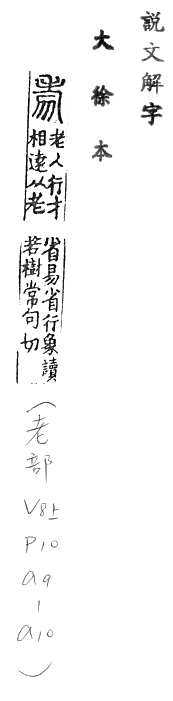 説文解字
大徐本
老人行才
相逮从老
省易省行象讀
若樹常句切
(老部
V8上
P10
a9
-
a10
)